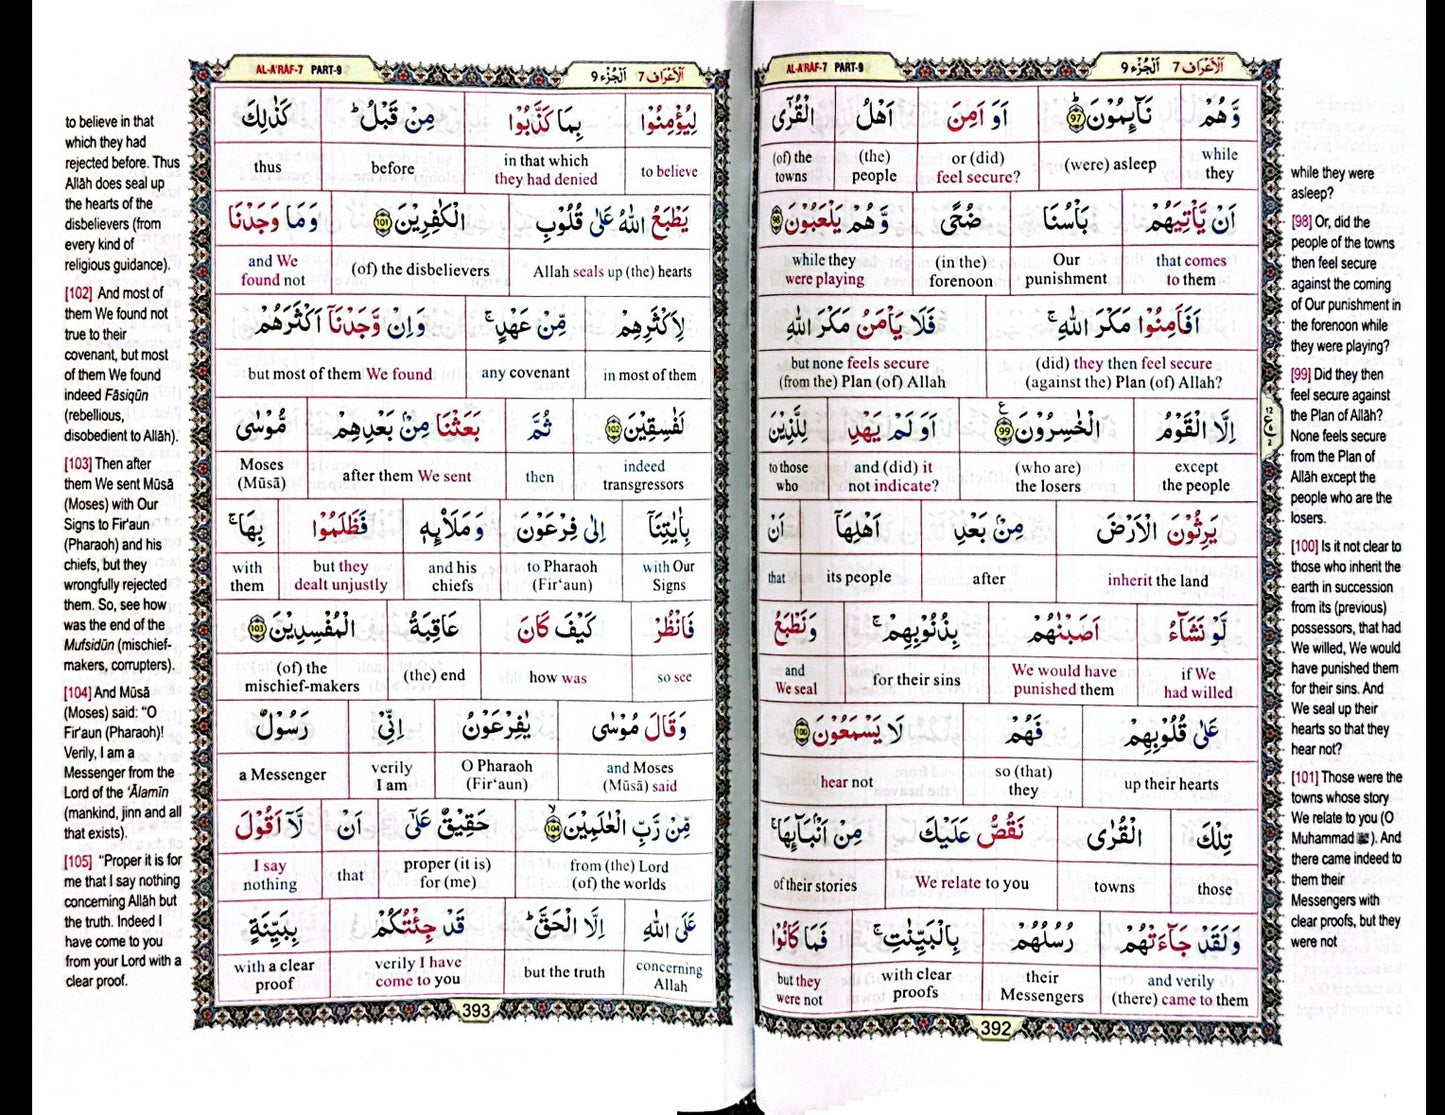 AL-A'RAF-7 PART-9
اَلْجُزْء 9 اَلْاَعْرَاف 7
وَّهُمْ نَآئِمُوْنَ ۟ؕ 97 اَوَ اَمِنَ اَهْلُ الْقُرٰٓى
while
they
(were) asleep
or (did)
feel secure?
(the)
people
(of) the
towns
اَنْ يَّاْتِيَهُمْ بَاْسُنَا ضُحًى وَّهُمْ يَلْعَبُوْنَ 98
that comes
to them
Our
punishment
(in the)
forenoon
while they
were playing
اَفَاَمِنُوْا مَكْرَ اللّٰهِ ۚ فَلَا يَاْمَنُ مَكْرَ اللّٰهِ
(did) they then feel secure
(against the) Plan (of) Allah?
but none feels secure
(from the) Plan (of) Allah
اِلَّا الْقَوْمُ الْخٰسِرُوْنَ 99 ع اَوَ لَمْ يَهْدِ لِلَّذِيْنَ
except
the people
(who are)
the losers
and (did) it
not indicate?
to those
who
يَرِثُوْنَ الْاَرْضَ مِنْۢ بَعْدِ اَهْلِهَآ اَنْ
inherit the land
after
its people
that
لَّوْ نَشَآءُ اَصَبْنٰهُمْ بِذُنُوْبِهِمْ ۚ وَنَطْبَعُ
if We
had willed
We would have
punished them
for their sins
and
We seal
عَلٰى قُلُوْبِهِمْ فَهُمْ لَا يَسْمَعُوْنَ 100
up their hearts
so (that)
they
hear not
تِلْكَ الْقُرٰى نَقُصُّ عَلَيْكَ مِنْ اَنْۢبَآئِهَا ۚ
those
towns
We relate to you
of their stories
وَلَقَدْ جَآءَتْهُمْ رُسُلُهُمْ بِالْبَيِّنٰتِ ۚ فَمَا كَانُوْا
and verily
(there) came to them
their
Messengers
with clear
proofs
but they
were not
392
while they were
asleep?
[98] Or, did the
people of the towns
then feel secure
against the coming
of Our punishment in
the forenoon while
they were playing?
[99] Did they then
feel secure against
the Plan of Allāh?
None feels secure
from the Plan of
Allāh except the
people who are the
losers.
[100] Is it not clear to
those who inherit the
earth in succession
from its (previous)
possessors, that had
We willed, We would
have punished them
for their sins. And
We seal up their
hearts so that they
hear not?
[101] Those were the
towns whose story
We relate to you (O
Muhammad ﷺ). And
there came indeed to
them their
Messengers with
clear proofs, but they
were not
AL-A'RAF-7 PART-9
اَلْجُزْء 9 اَلْاَعْرَاف 7
لِيُؤْمِنُوْا بِمَا كَذَّبُوْا مِنْ قَبْلُ ؕ كَذٰلِكَ
to believe
in that which
they had denied
before
thus
يَطْبَعُ اللّٰهُ عَلٰى قُلُوْبِ الْكٰفِرِيْنَ 101 وَمَا وَجَدْنَا
Allah seals up (the) hearts
(of) the disbelievers
and We
found not
لِاَكْثَرِهِمْ مِّنْ عَهْدٍ ۚ وَاِنْ وَّجَدْنَآ اَكْثَرَهُمْ
in most of them
any covenant
but most of them We found
لَفٰسِقِيْنَ 102 ثُمَّ بَعَثْنَا مِنْۢ بَعْدِهِمْ مُّوْسٰى
indeed
transgressors
then
after them We sent
Moses
(Mūsā)
بِاٰيٰتِنَآ اِلٰى فِرْعَوْنَ وَمَلَا۟ئِهٖ فَظَلَمُوْا بِهَا ۚ
with Our
Signs
to Pharaoh
(Fir‘aun)
and his
chiefs
but they
dealt unjustly
with
them
فَانْظُرْ كَيْفَ كَانَ عَاقِبَةُ الْمُفْسِدِيْنَ 103
so see
how was
(the) end
(of) the
mischief-makers
وَقَالَ مُوْسٰى يٰفِرْعَوْنُ اِنِّىْ رَسُوْلٌ
and Moses
(Mūsā) said
O Pharaoh
(Fir‘aun)
verily
I am
a Messenger
مِّنْ رَّبِّ الْعٰلَمِيْنَ 104 حَقِيْقٌ عَلٰٓى اَنْ لَّآ اَقُوْلَ
from (the) Lord
(of) the worlds
proper (it is)
for (me)
that
I say
nothing
عَلَى اللّٰهِ اِلَّا الْحَقَّ ؕ قَدْ جِئْتُكُمْ بِبَيِّنَةٍ
concerning
Allah
but the truth
verily I have
come to you
with a clear
proof
393
to believe in that
which they had
rejected before. Thus
Allāh does seal up
the hearts of the
disbelievers (from
every kind of
religious guidance).
[102] And most of
them We found not
true to their
covenant, but most
of them We found
indeed Fāsiqūn
(rebellious,
disobedient to Allāh).
[103] Then after
them We sent Mūsā
(Moses) with Our
Signs to Fir'aun
(Pharaoh) and his
chiefs, but they
wrongfully rejected
them. So, see how
was the end of the
Mufsidūn (mischief-
makers, corrupters).
[104] And Mūsā
(Moses) said: “O
Fir'aun (Pharaoh)!
Verily, I am a
Messenger from the
Lord of the ‘Ālamīn
(mankind, jinn and all
that exists).
[105] “Proper it is for
me that I say nothing
concerning Allāh but
the truth. Indeed I
have come to you
from your Lord with a
clear proof.